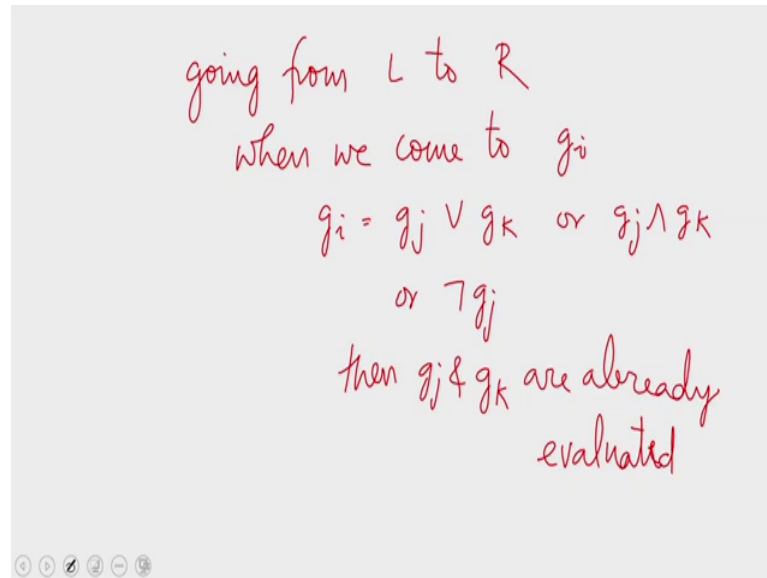 going from L to R
when we come to gi
gi = gj ∨ gk or gj ∧ gk
or ¬gj
then gj & gk are already
evaluated